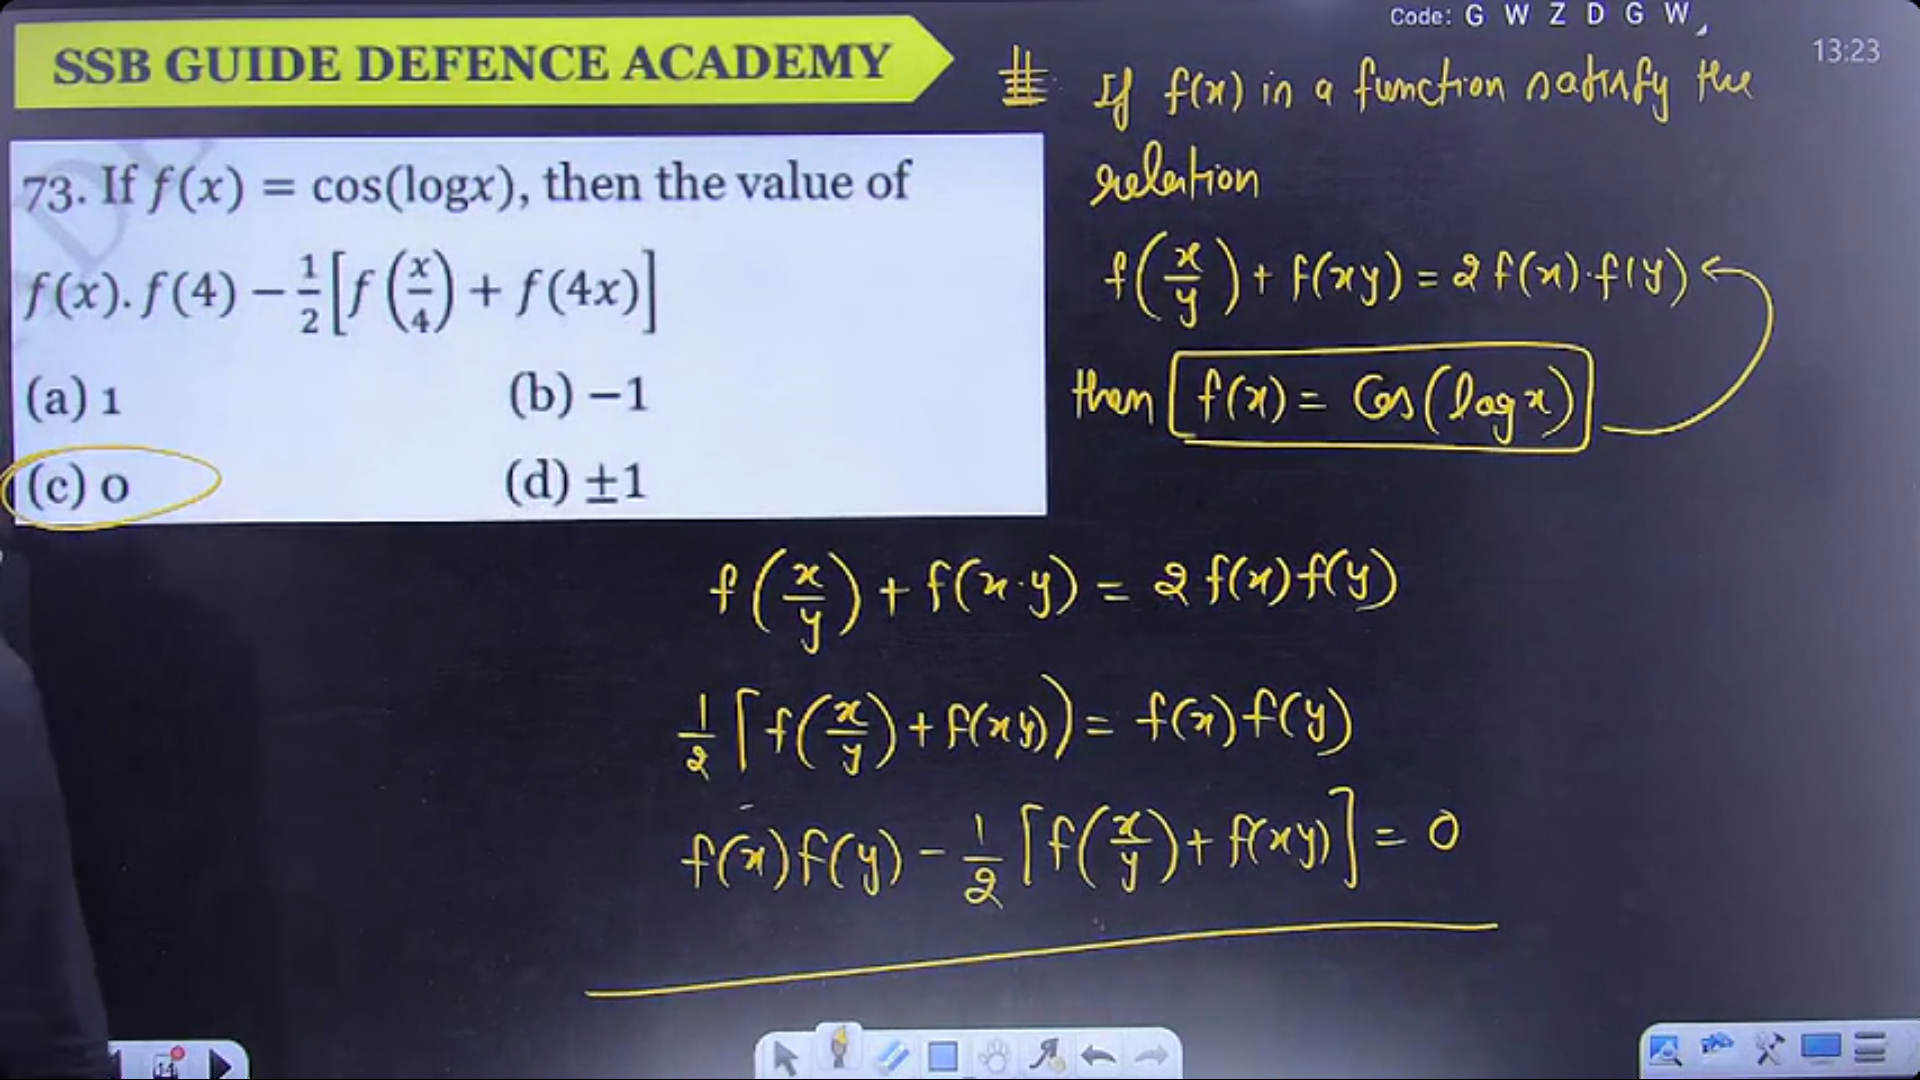 Code: G W Z D G W
13:23
SSB GUIDE DEFENCE ACADEMY
73. If f(x) = cos(logx), then the value of
f(x).f(4) − 1/2[f(x/4) + f(4x)]
(a) 1
(b) −1
(c) 0
(d) ±1
# If f(x) in a function satisfy the
relation
f(x/y) + f(xy) = 2 f(x)·f(y)
then f(x) = Cos(log x)
f(x/y) + f(x·y) = 2 f(x) f(y)
1/2 [f(x/y) + f(xy)) = f(x) f(y)
f(x) f(y) − 1/2 [f(x/y) + f(xy)] = 0
14